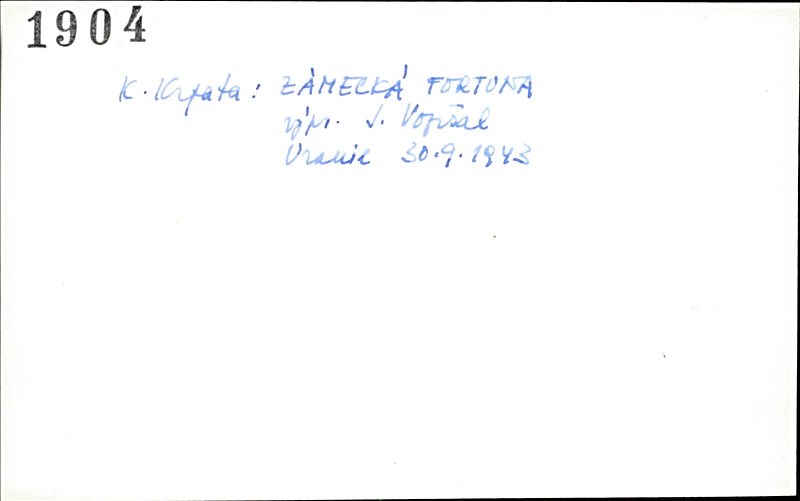 1904
K. Krpata: ZÁMECKÁ FORTUNA
výpr. J. Vopršal
Uranie 30.9.1943